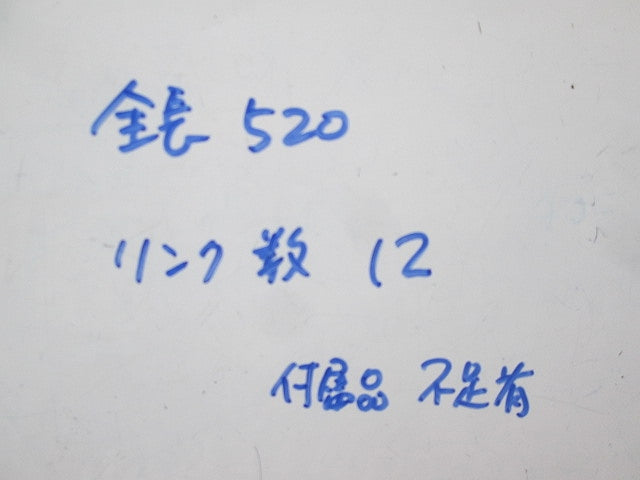 全長 520
リンク数 12
付属品 不足有